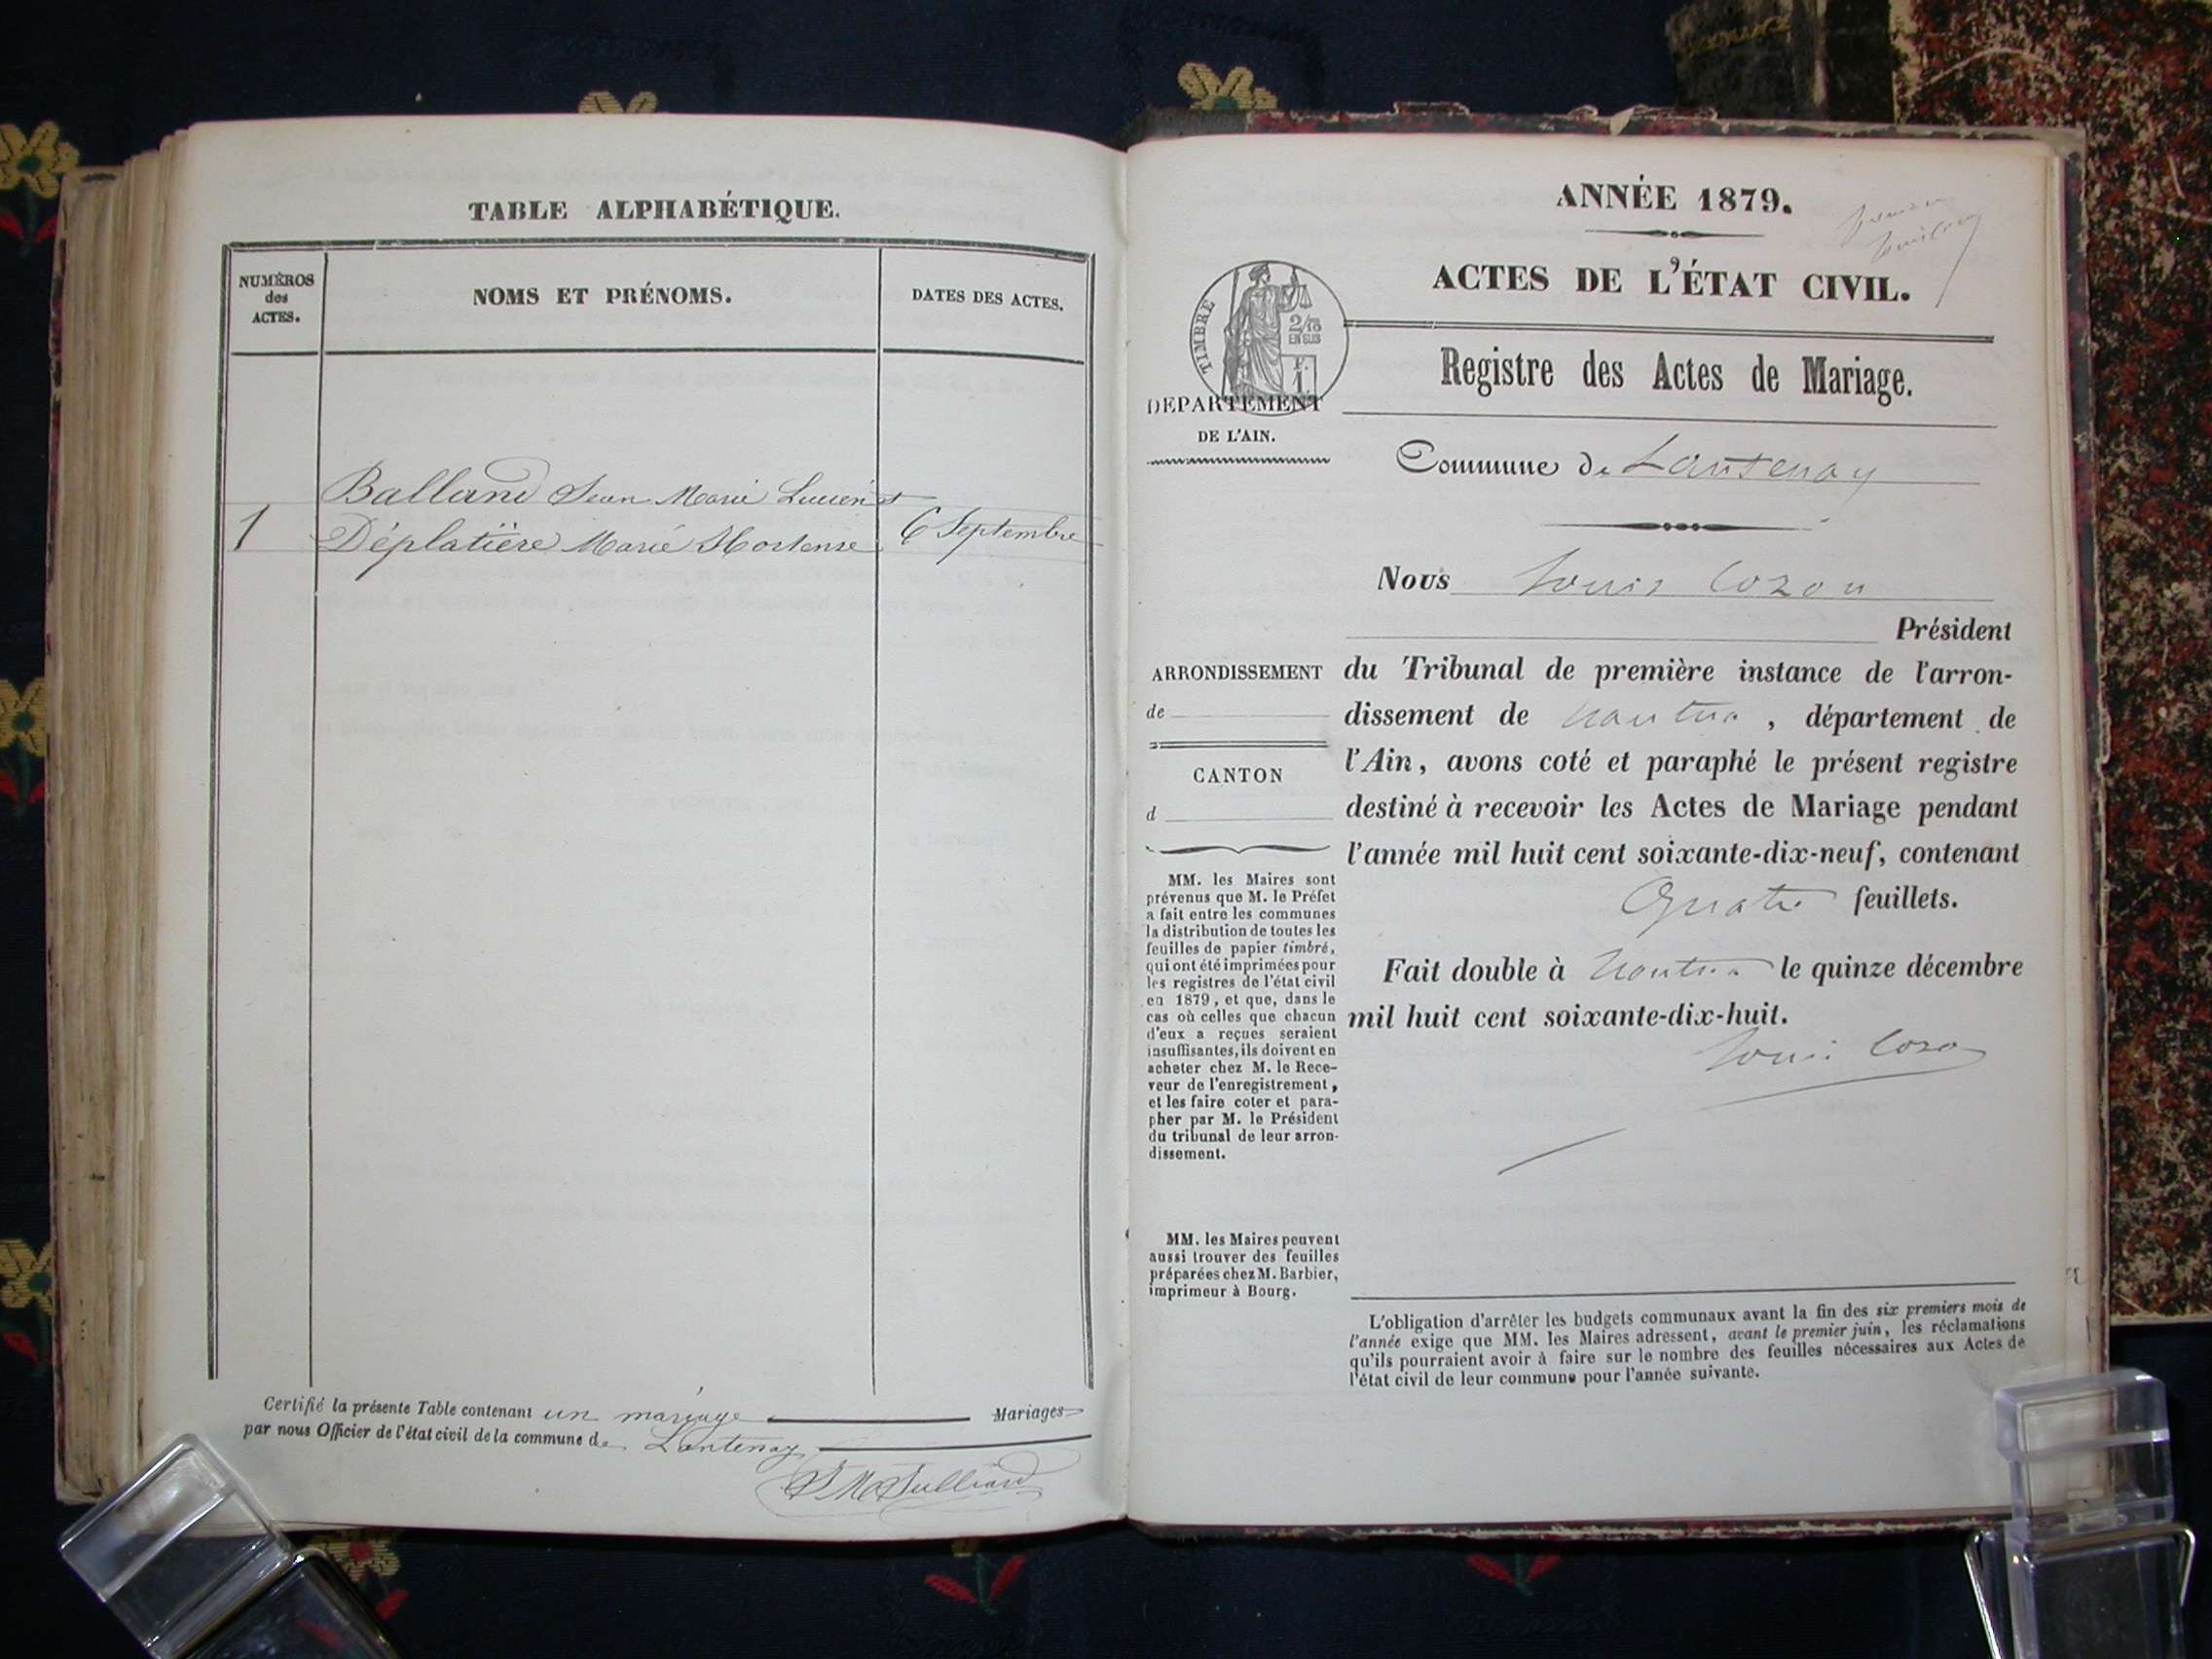 TABLE ALPHABÉTIQUE.
NUMÉROS
des
ACTES.
NOMS ET PRÉNOMS.
DATES DES ACTES.
Balland Jean Marie Lucien et
1 Déplatière Marie Hortense 6 Septembre
Certifié la présente Table contenant un mariage Mariages
par nous Officier de l'état civil de la commune de Lantenay
ANNÉE 1879.
ACTES DE L'ÉTAT CIVIL.
TIMBRE
2/10
EN SUS
F.
1
Registre des Actes de Mariage.
DEPARTEMENT
DE L'AIN.
Commune de Lantenay
Nous Louis Cozon
Président
ARRONDISSEMENT
de
CANTON
d
du Tribunal de première instance de l'arron-
dissement de Nantua, département de
l'Ain, avons coté et paraphé le présent registre
destiné à recevoir les Actes de Mariage pendant
l'année mil huit cent soixante-dix-neuf, contenant
Quatre feuillets.
Fait double à Nantua le quinze décembre
mil huit cent soixante-dix-huit.
Louis Cozon
MM. les Maires sont
prévenus que M. le Préfet
a fait entre les communes
la distribution de toutes les
feuilles de papier timbré,
qui ont été imprimées pour
les registres de l'état civil
en 1879, et que, dans le
cas où celles que chacun
d'eux a reçues seraient
insuffisantes, ils doivent en
acheter chez M. le Rece-
veur de l'enregistrement,
et les faire coter et para-
pher par M. le Président
du tribunal de leur arron-
dissement.
MM. les Maires peuvent
aussi trouver des feuilles
préparées chez M. Barbier,
imprimeur à Bourg.
L'obligation d'arrêter les budgets communaux avant la fin des six premiers mois de
l'année exige que MM. les Maires adressent, avant le premier juin, les réclamations
qu'ils pourraient avoir à faire sur le nombre des feuilles nécessaires aux Actes de
l'état civil de leur commune pour l'année suivante.